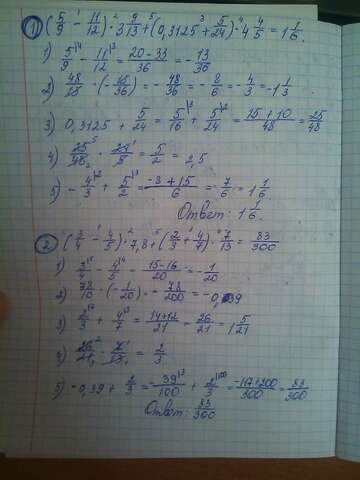 1) (5/9 - 11/12) · 3 9/13 + (0,3125 + 5/24) · 4 4/5 = 1 1/6.
1) 5/9 - 11/12 = 20-33/36 = - 13/36
2) 48/13 · (-13/36) = - 48/36 = - 8/6 = - 4/3 = -1 1/3
3) 0,3125 + 5/24 = 5/16 + 5/24 = 15+10/48 = 25/48
4) 25/48 · 24/5 = 5/2 = 2,5
5) - 4/3 + 5/2 = -8+15/6 = 7/6 = 1 1/6
Ответ: 1 1/6.
2. (3/4 - 4/5) · 7,8 + (2/3 + 4/7) · 7/13 = 83/300
1) 3/4 - 4/5 = 15-16/20 = - 1/20
2) 78/10 · (-1/20) = - 78/200 = -0,39
3) 2/3 + 4/7 = 14+12/21 = 26/21 = 1 5/21
4) 26/21 · 7/13 = 2/3
5) -0,39 + 2/3 = - 39/100 + 2/3 = -117+200/300 = 83/300
Ответ: 83/300